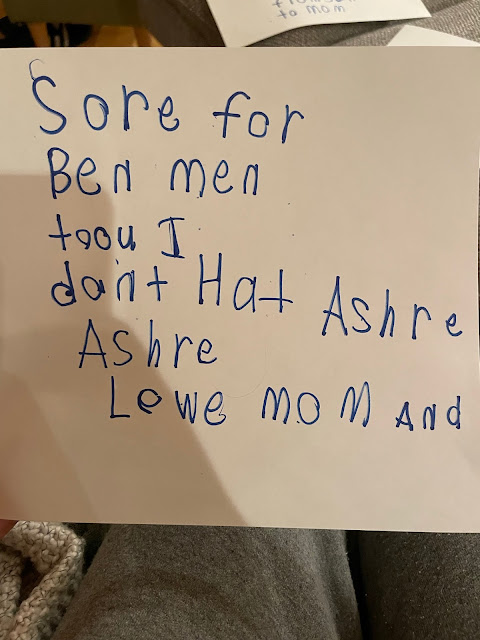 to mom
Sore for
Ben men
toou I
don't Hat Ashre
Ashre
Lowe mom And